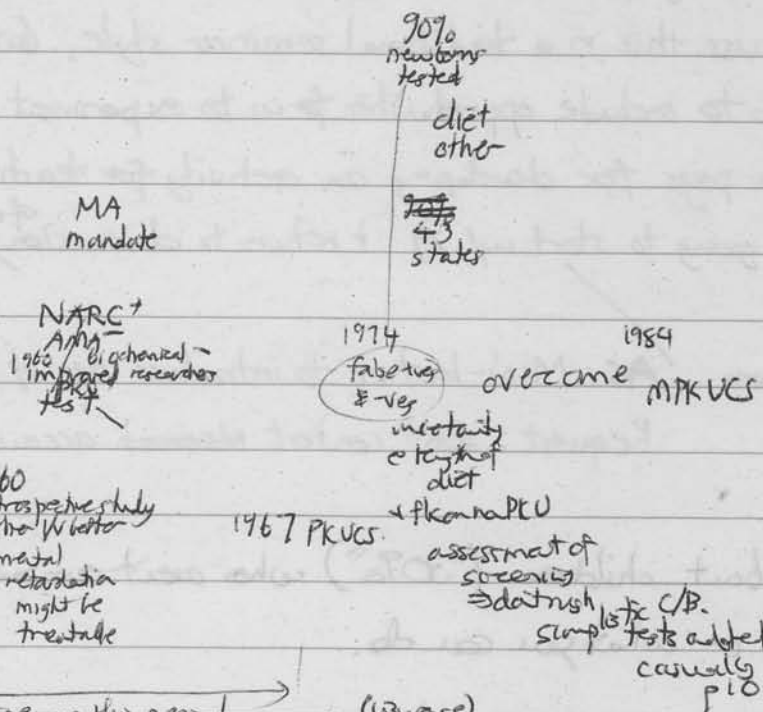 90%
newborns
tested
diet
other
43
states
MA
mandate
NARC+
AMA
1960 biochemical
improved researchers
PKU
test
1974
false +ves
& -ves
overcome
1984
MPKUCS
uncertainty
e length of
diet
60
retrospective study
mental
retardation
might be
treatable
1967 PKUCS
assessment of
screening
C/B.
simplistic
tests adopted
casually
p10